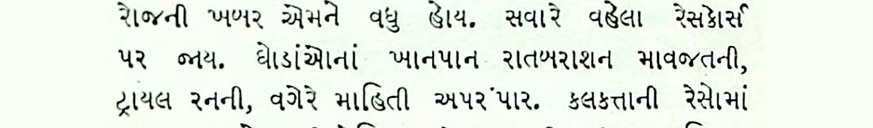 રોજની ખબર એમને વધુ હોય. સવારે વહેલા રેસકોર્સ
પર જાય. ઘોડાંઓનાં ખાનપાન રાતબરાશન માવજતની,
ટ્રાયલ રનની, વગેરે માહિતી અપરંપાર. કલકત્તાની રેસોમાં